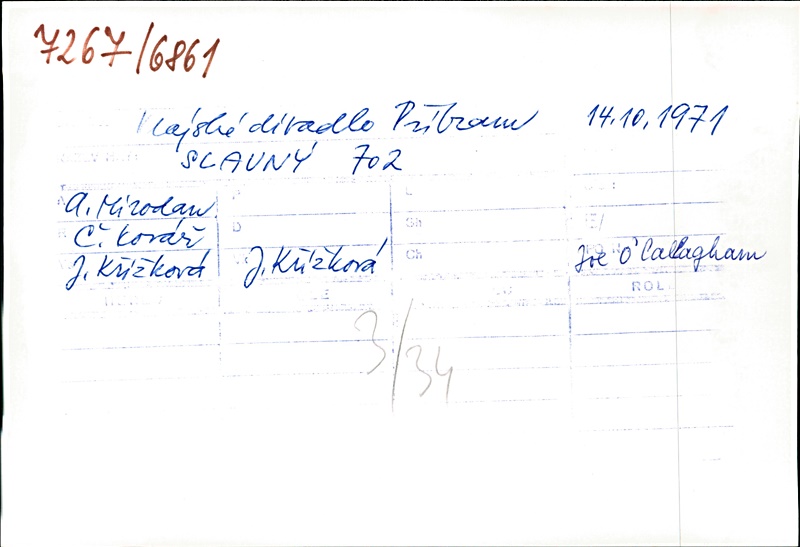 7267/6861
Krajské divadlo Příbram 14.10.1971
SLAVNÝ 702
A. Mirodan
Č. Kovář
J. Křížková J. Křížková Joe O'Callagham
D
Gh
Ch
ROL
3/34